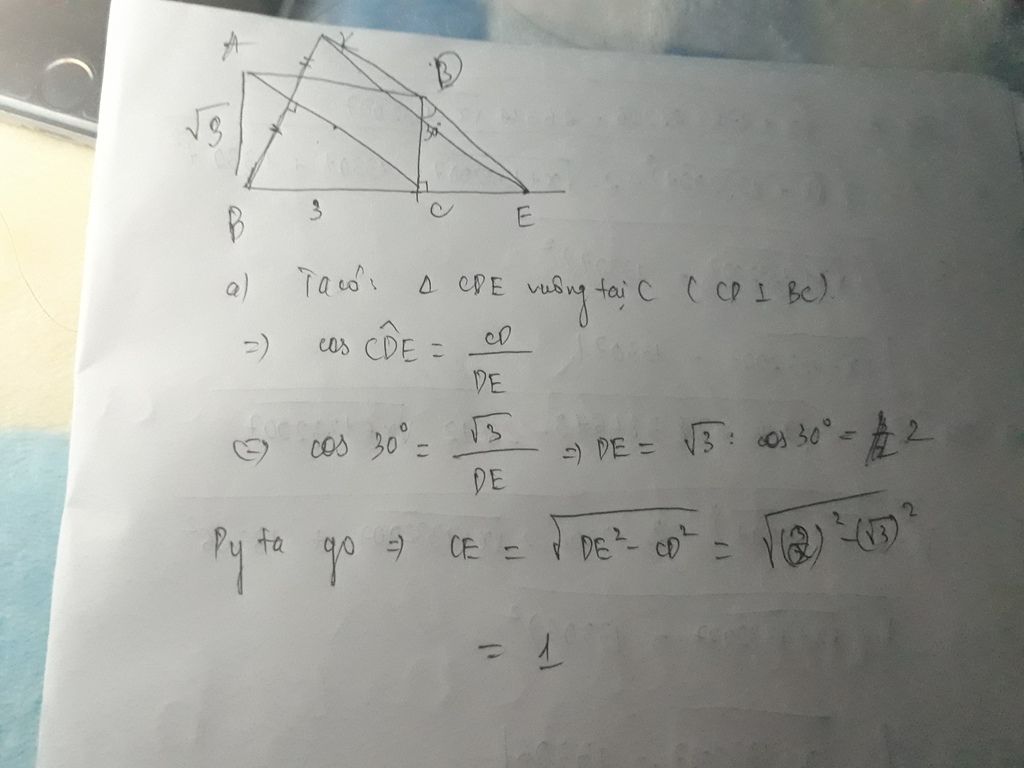 A K D
√3 30°
B 3 C E
a) Ta có: Δ CDE vuông tại C ( CD ⊥ BC)
=) cos CDÊ = CD / DE
(=) cos 30° = √3 / DE =) DE = √3 : cos 30° = 2
Py ta go => CE = √(DE² - CD²) = √((2)² - (√3)²)
= 1